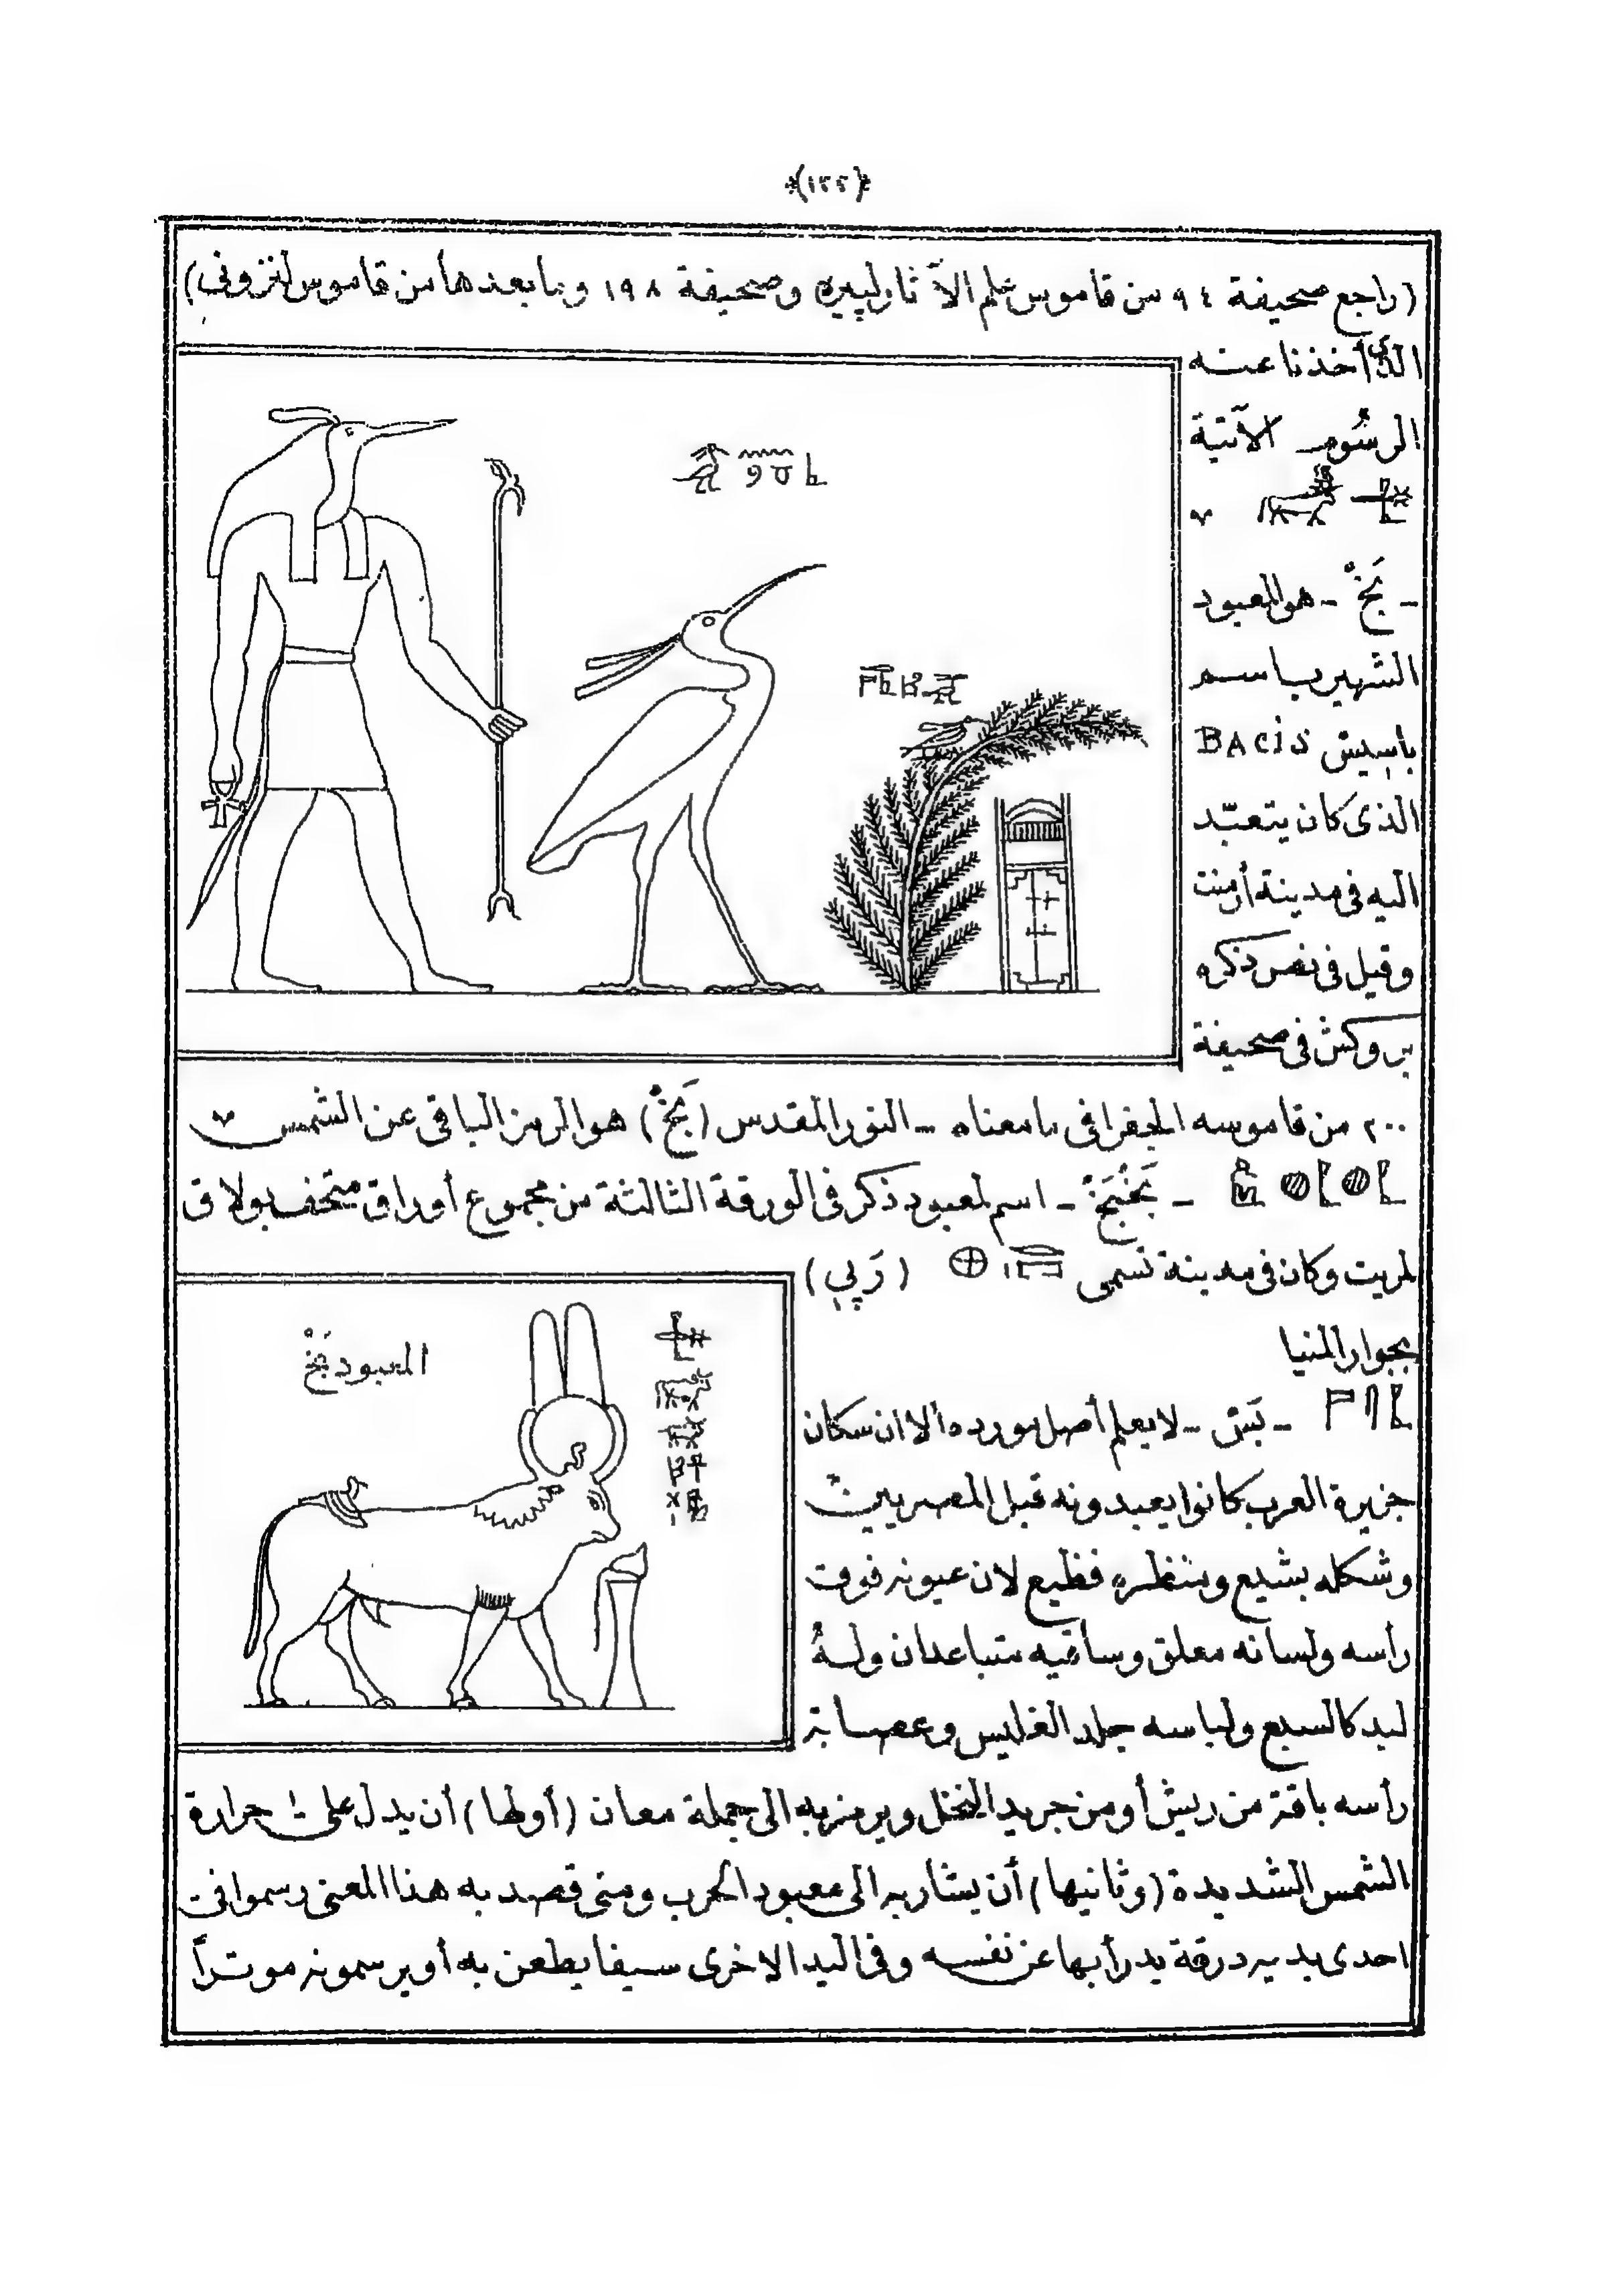 (١٢٢)
(راجع صحيفة ٩٤ من قاموس علم الآثار لپيره وصحيفة ١٩٨ وما بعدها من قاموس لنزوني)
الذي أخذنا عنه
الرسوم الآتية
- بَخْ - هو المعبود
الشهير باسم
باسيس BACIS
الذى كان يتعبّد
اليه فى مدينة أرمنت
وقيل فى نص ذكره
بروكش فى صحيفة
٢٠٠ من قاموسه الجغرافى ما معناه - النور المقدس (بَخْ) هو الرمز الباقى عن الشمس
- بَخْبَخْ - اسم لمعبود ذكر فى الورقة الثالثة من مجموع أوراق متحف بولاق
لمريت وكان فى مدينة تسمى (رَپِى)
بجوار المنيا
المعبود بَخْ
- بَسْ - لا يعلم أصل مورده ألا ان سكان
جزيرة العرب كانوا يعبدونه قبل المصريين
وشكله بشيع ومنظره فظيع لان عيونه فوق
رأسه ولسانه معلق وساقيه متباعدان ولهُ
لبد كالسبع ولباسه جلد الفليس وعصابة
رأسه باقة من ريش أو من جريد النخل ويرمز به الى جملة معان (أولها) أن يدل على حرارة
الشمس الشديدة (وثانيها) أن يشار به الى معبود الحرب ومتى قصد به هذا المعنى رسموا فى
احدى يديه درقة يدرأ بها عن نفسه وفى اليد الاخرى سيفا يطعن به أو يرسمونه موتراً